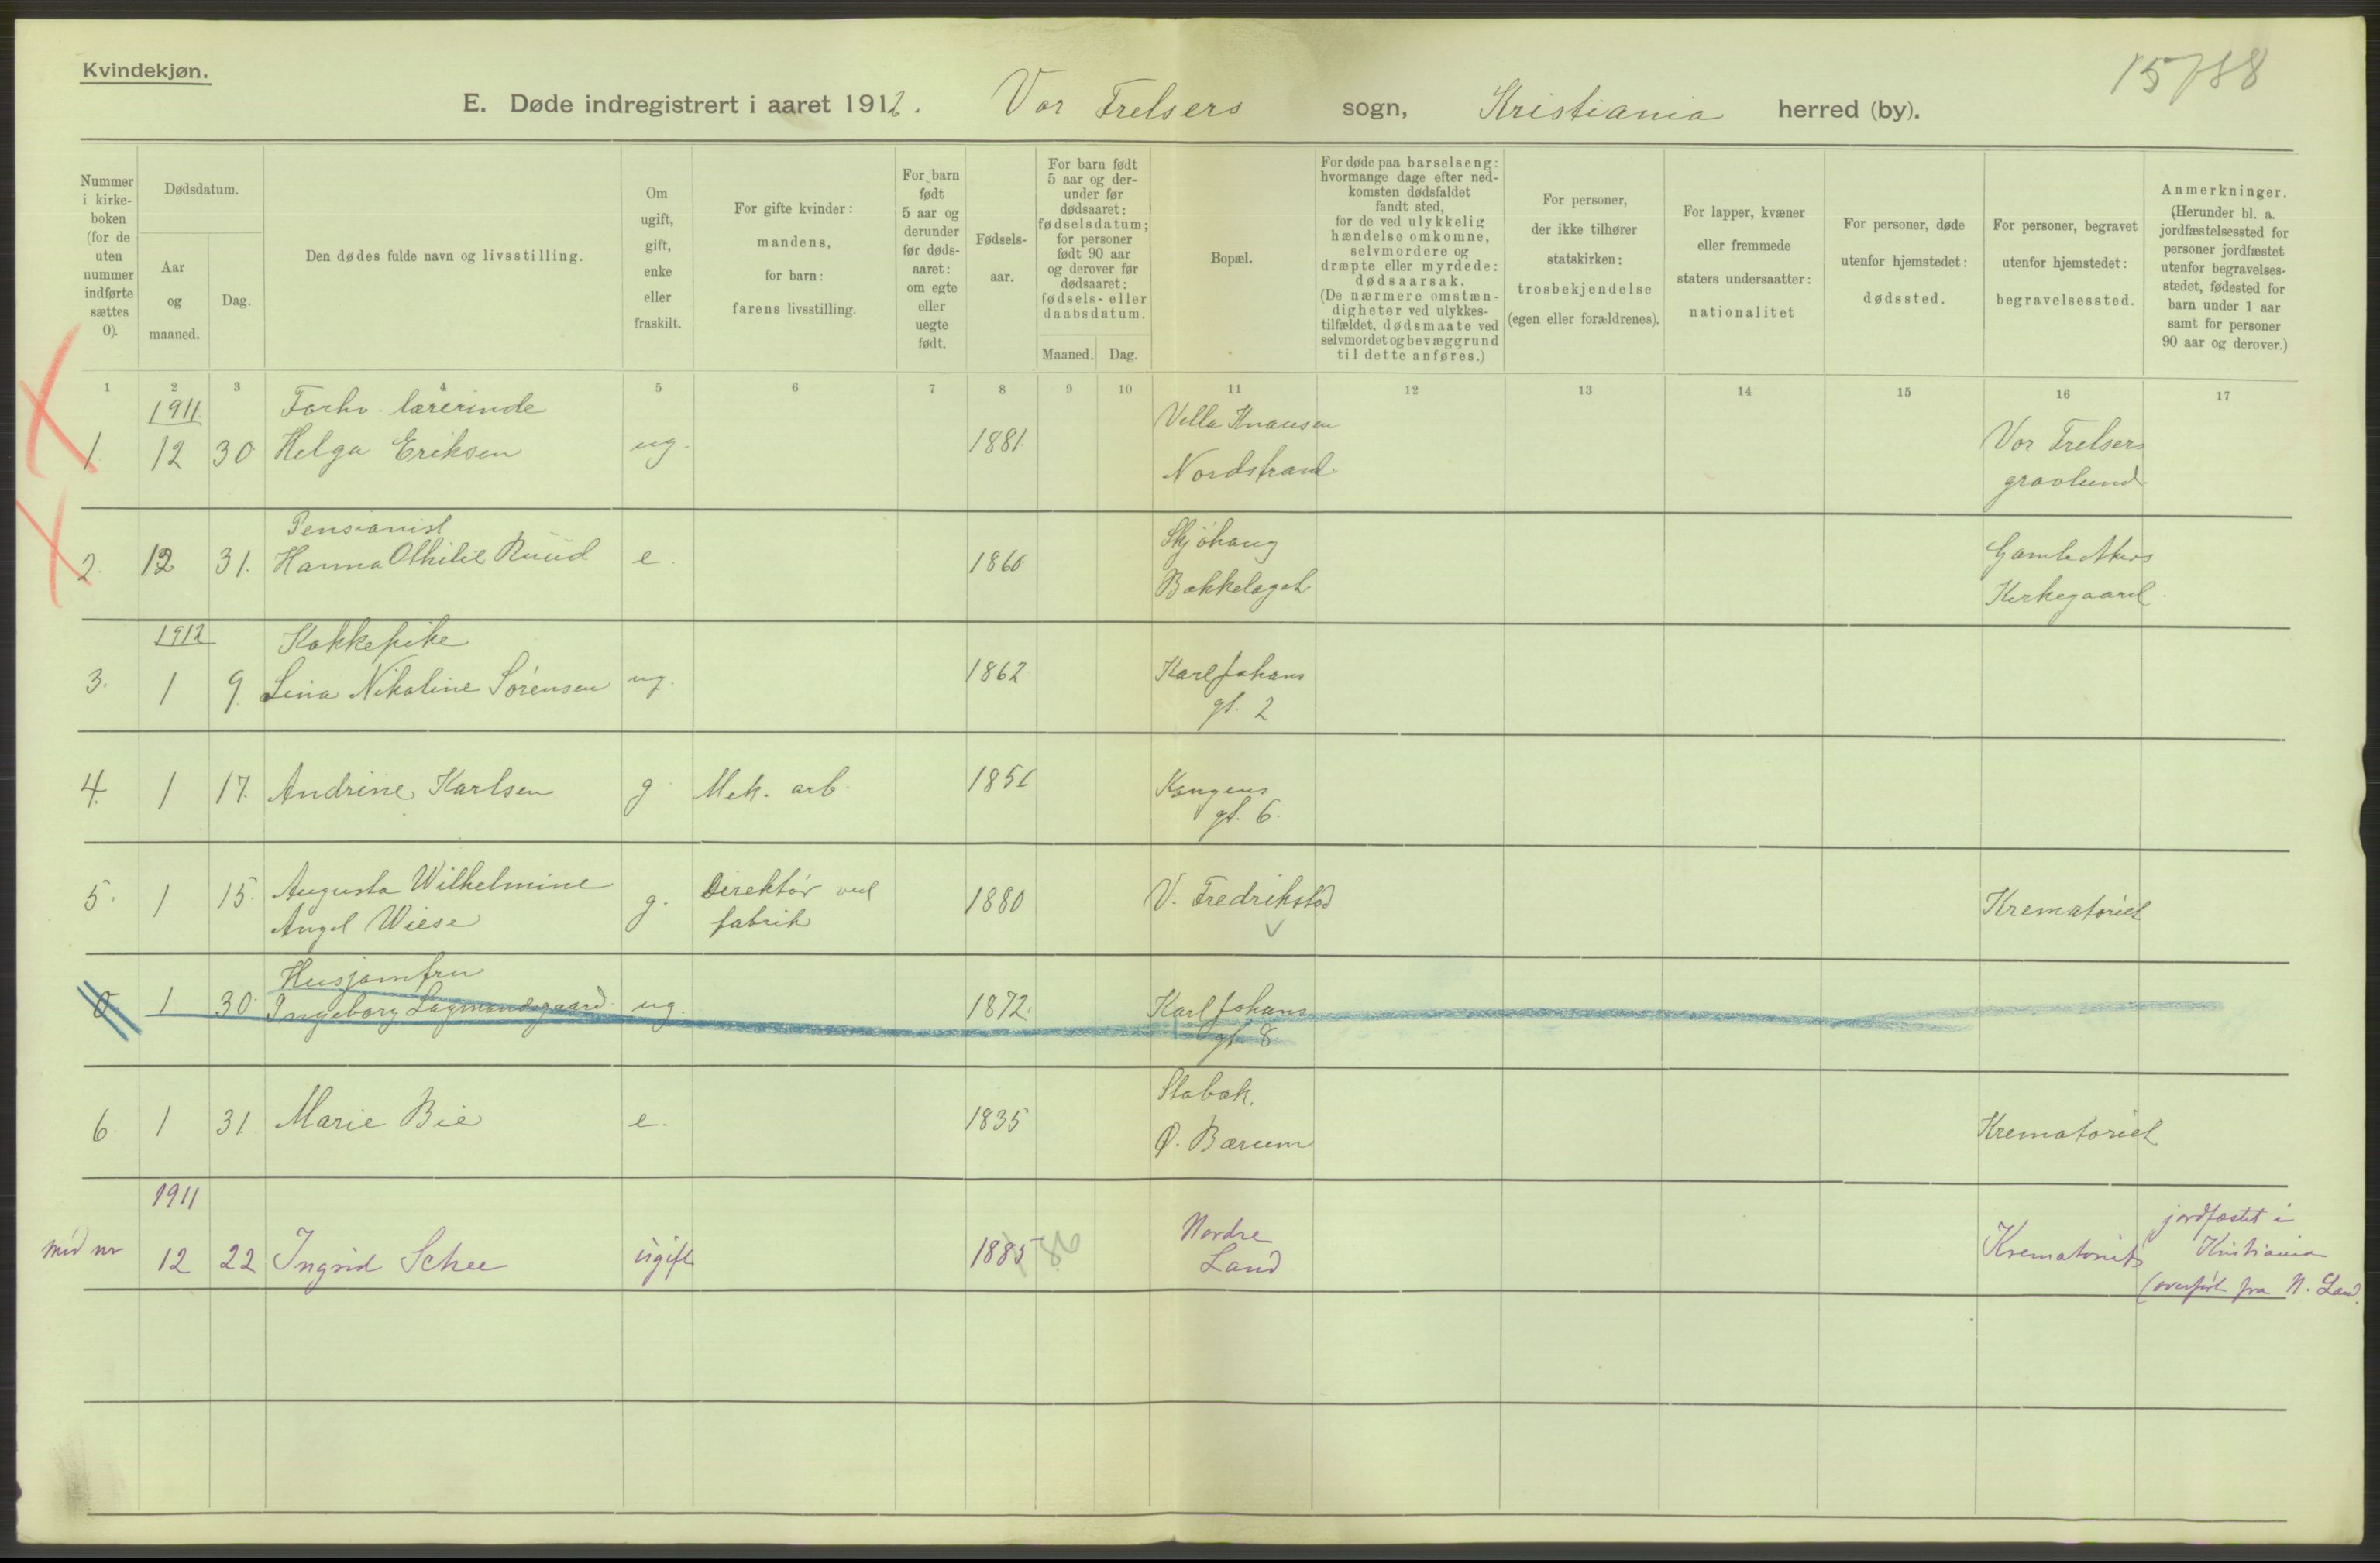 Kvindekjøn.
15/88
E. Døde indregistrert i aaret 1912. Vor Frelsers sogn, Kristiania herred (by).
Nummer i kirkeboken (for de uten nummer indførte sættes 0).
Dødsdatum.
Aar og maaned.
Dag.
Den dødes fulde navn og livsstilling.
Om ugift, gift, enke eller fraskilt.
For gifte kvinder: mandens, for barn: farens livsstilling.
For barn født 5 aar og derunder før dødsaaret: om egte eller uegte født.
Fødselsaar.
For barn født 5 aar og derunder før dødsaaret: fødselsdatum; for personer født 90 aar og derover før dødsaaret: fødsels- eller daabsdatum.
Maaned. Dag.
Bopæl.
For døde paa barselseng: hvormange dage efter nedkomsten dødsfaldet fandt sted, for de ved ulykkelig hændelse omkomne, selvmordere og dræpte eller myrdede: dødsaarsak. (De nærmere omstændigheter ved ulykkestilfældet, dødsmaate ved selvmordet og bevæggrund til dette anføres.)
For personer, der ikke tilhører statskirken: trosbekjendelse (egen eller forældrenes).
For lapper, kvæner eller fremmede staters undersaatter: nationalitet
For personer, døde utenfor hjemstedet: dødssted.
For personer, begravet utenfor hjemstedet: begravelsessted.
Anmerkninger. (Herunder bl. a. jordfæstelsessted for personer jordfæstet utenfor begravelsesstedet, fødested for barn under 1 aar samt for personer 90 aar og derover.)
1 2 3 4 5 6 7 8 9 10 11 12 13 14 15 16 17
1911 Forhv. lærerinde Villa Knausen
1. 12 30 Helga Eriksen ug. 1881 Nordstrand. Vor Frelsers gravlund.
Pensionist Skjøhaug
2. 12 31. Hanna Othilie Ruud e. 1860 Bækkelaget Gamle Akers Kirkegaard.
1912 Kokkepike
3. 1 9. Lina Nikoline Sørensen ug. 1862 Karl Johans gt. 2
4. 1 17. Andrine Karlsen g. Mek. arb. 1851 Kongens gt. 6.
5. 1 15. Augusta Wilhelmine g. Direktør ved 1880 V. Fredrikstad Krematoriet
Angel Wiese fabrik
Husjomfru
0 1 30. Ingeborg Lagmandsgaard ug. 1872. Karl Johans gt. 8.
6. 1 31. Marie Bie e. 1835 Stabæk. Ø. Bærum Krematoriet
1911
12 22 Ingrid Schee ugift 1885 86 Nordre Land Krematoriet jordfæstet i Kristiania
(overført fra N. Land.